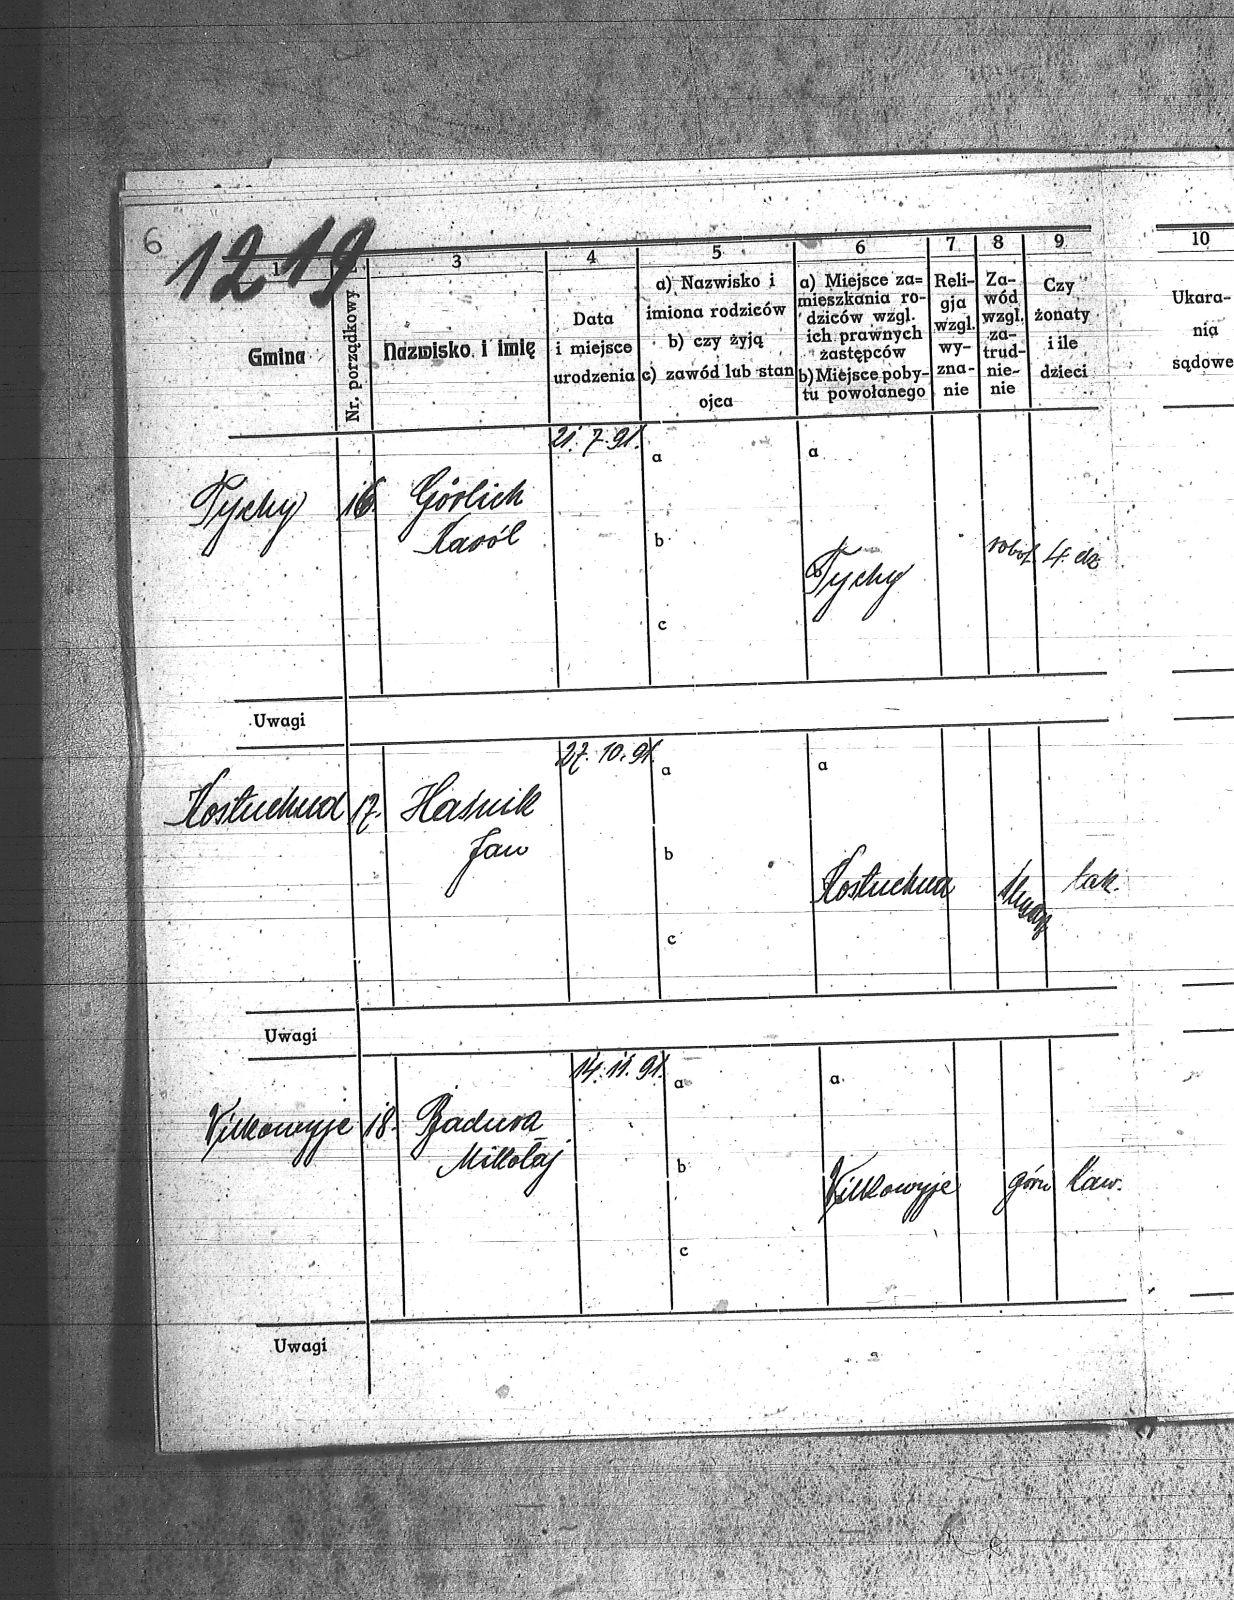 6
1219
1
3
4
5
6
7
8
9
10
Gmina
Nr. porządkowy
Nazwisko i imię
Data
i miejsce
urodzenia
a) Nazwisko i
imiona rodziców
b) czy żyją
c) zawód lub stan
ojca
a) Miejsce za=
mieszkania ro-
dziców wzgl.
ich prawnych
zastępców
b) Miejsce poby-
tu powołanego
Reli-
gja
wzgl.
wy-
zna-
nie
Za-
wód
wzgl.
za-
trud-
nie-
nie
Czy
żonaty
i ile
dzieci
Ukara-
nia
sądowe
Tychy
16
Görlich
Karól
21. 7. 91.
a
b
c
a
Tychy
robot
4. dz
Uwagi
Kostuchna
17.
Haśnik
Jan
27. 10. 91.
a
b
c
a
Kostuchna
tak.
Uwagi
Wilkowyje
18.
Badura
Mikołaj
14. 11. 91.
a
b
c
a
Wilkowyje
górn
kaw.
Uwagi